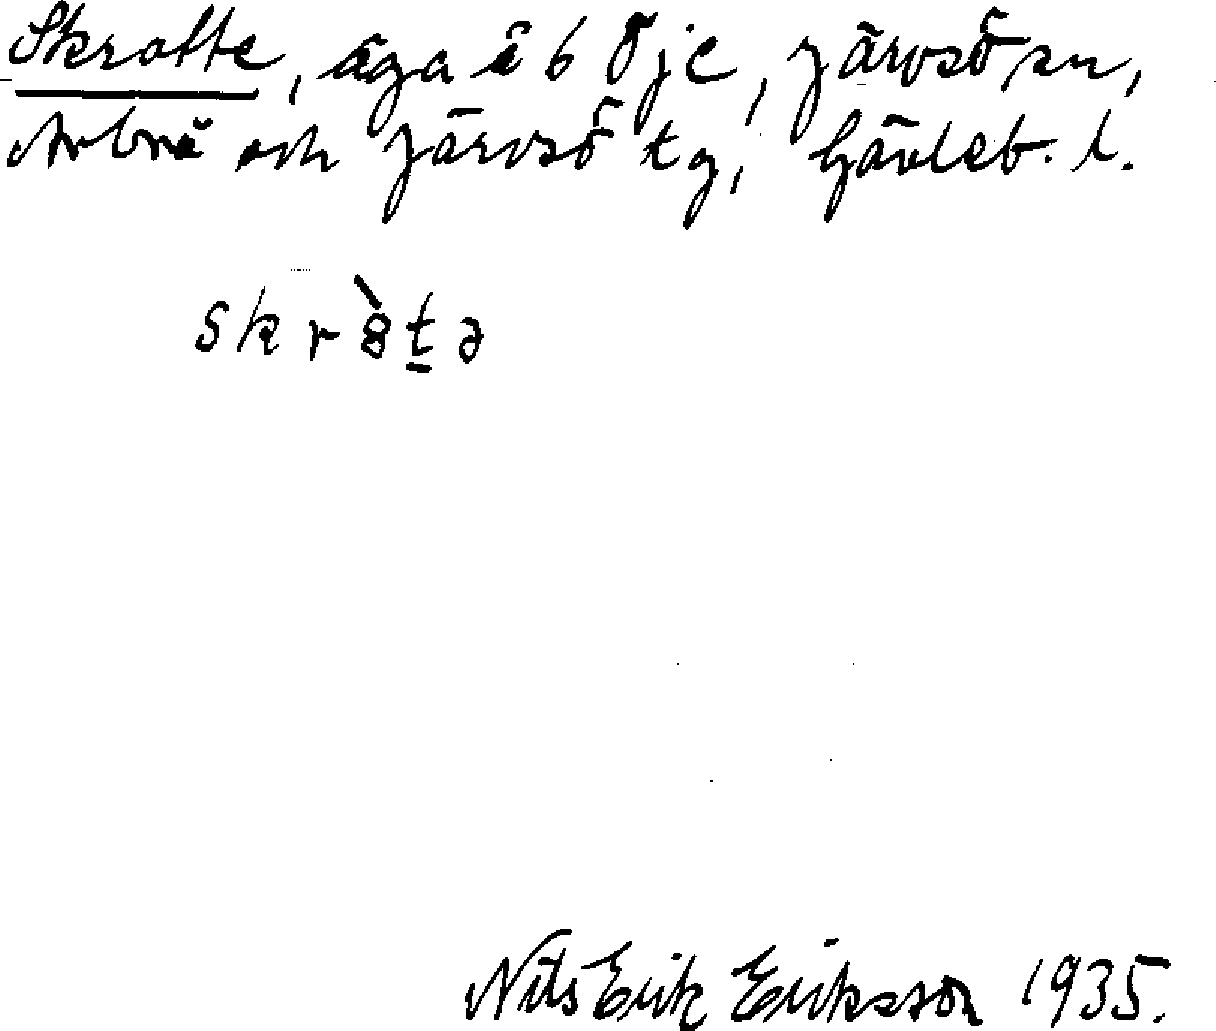 Skratte, äga å 6 Öje, Järvsö sn,
Arbrå och Järvsö tg, Gävleb. l.
skr8̀t̠ə
Nils Erik Eriksson 1935.